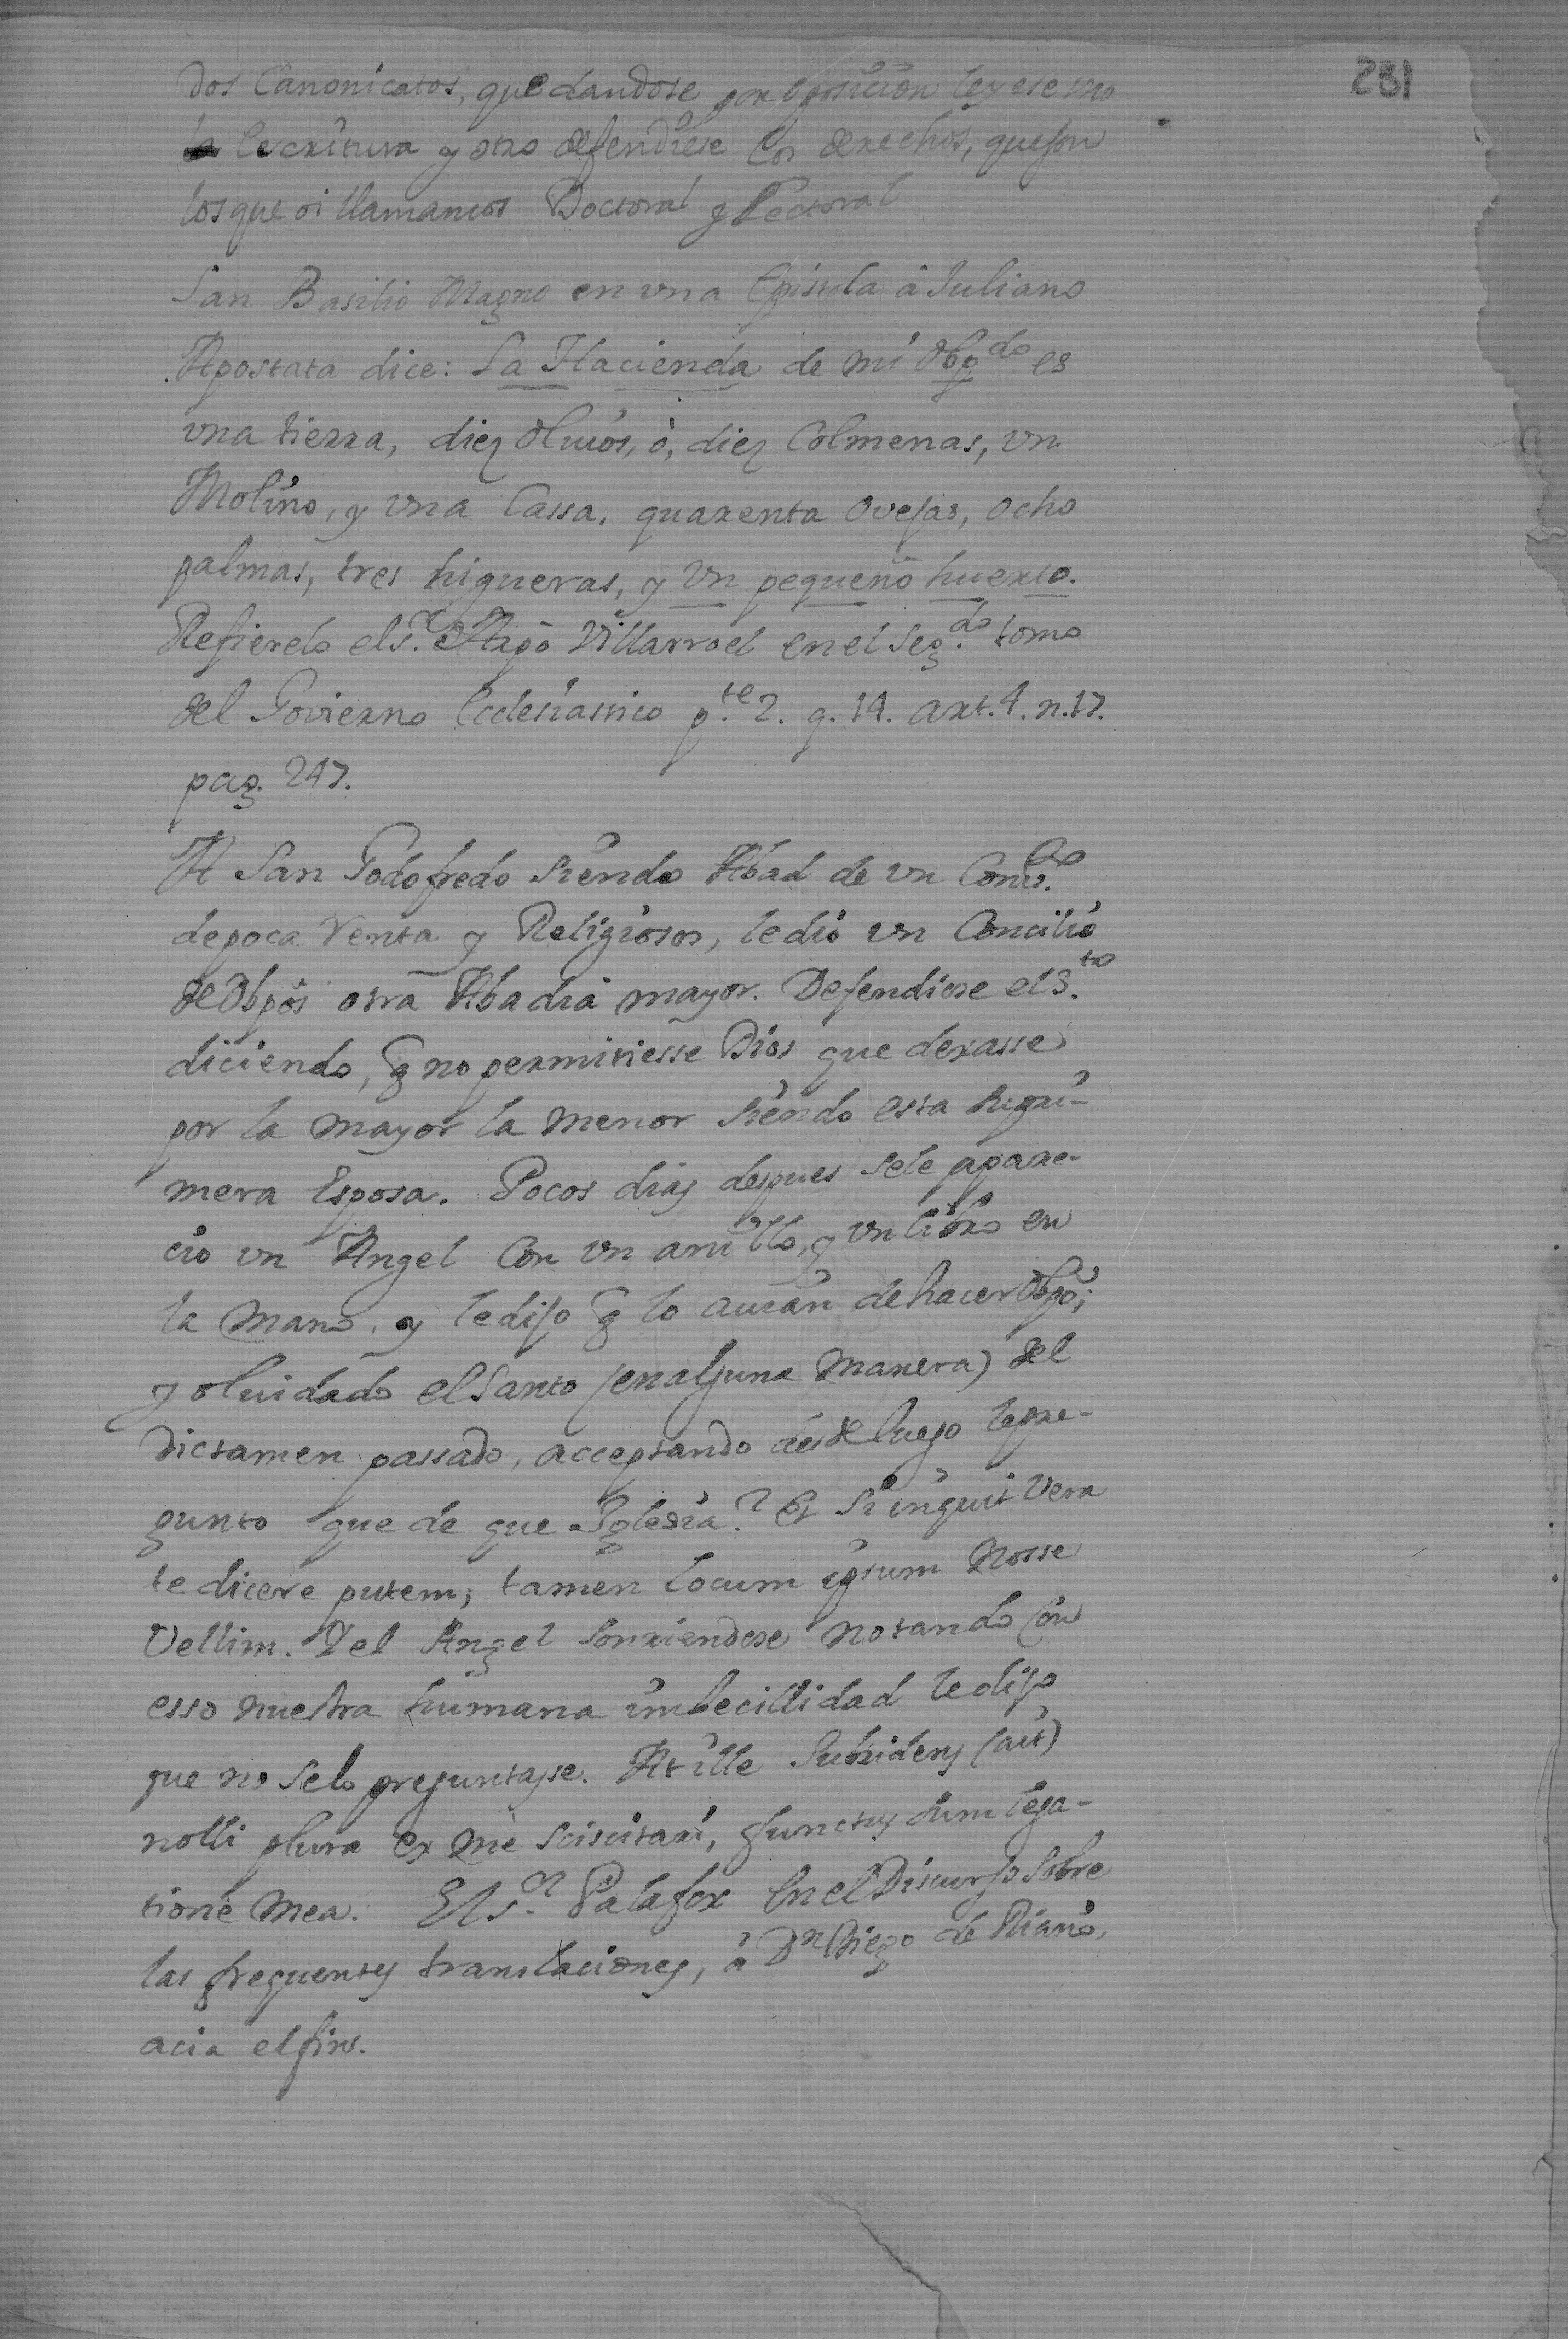 231
dos Canonicatos, que dandose por oposicion leyese vno
la Escritura y otro defendiese los derechos, que son
los que oi llamamos Doctoral y Lectoral
San Basilio Magno en vna Epistola â Iuliano
Apostata dice: La Hacienda de mi Obpdo es
vna tierra, diez oliuos, ò, diez Colmenas, vn
Molino, y vna Cassa, quarenta ovejas, ocho
palmas, tres higueras, y vn pequeño huerto.
Refierelo el Sr. Arpô Villarroel en el Segdo. tomo
del Govierno Ecclesiastico pte. 2. q. 14. art. 4. n. 17.
pag. 247.
A San Godofredo siendo Abad de vn Convto.
de poca renta y Religiosos, le dió vn Concilio
de Obpôs otra Abadia mayor. Defendiose el Sto.
diciendo, q no permitiesse Dios que dexasse
por la mayor la menor siendo esta su pri-
mera Esposa. Pocos dias despues se le apare-
cio vn Angel con vn anillo, y vn libro en
la mano, y le dijo q lo auian de hacer Obpô;
y oluidado el Santo (en alguna manera) del
dictamen passado, acceptando desde luego le pre-
gunto que de que Iglesia? Et si inquit vera
te dicere putem, tamen locum ipsum nosse
Vellim. Y el Angel sonriendose notando con
esso nuestra humana imbecillidad le dijo
que no se lo preguntasse. At ille subridens (ait)
nolli plura ex me sciscitari, functus sum lega-
tione mea. El Sr. Palafox en el Discurso sobre
las frequentes translaciones, â Dn Diego de Riaño,
acia el fin.